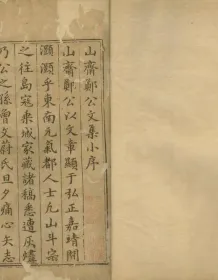 山齋鄭公文集小序
山齋鄭公以文章顯于弘正嘉靖間
灝灝乎東南元氣都人士尢山斗宗
之徃島寇来城家藏諸稿悉遭灰燼
乃公之孫曾文蔚氏旦夕痛心矢志